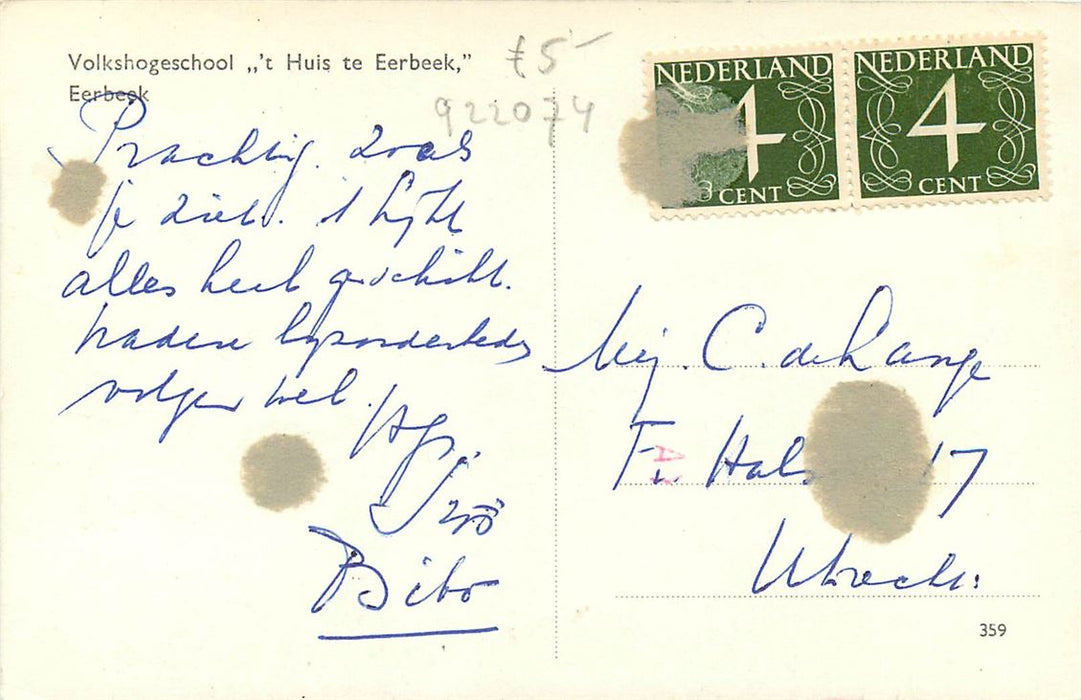 Volkshogeschool „'t Huis te Eerbeek,”
Eerbeek
£5-
922074
NEDERLAND
4
CENT
NEDERLAND
4
CENT
Prachtig zoals
je ziet. 't lijkt
alles heel geschikt.
nadere bijzonderheden
volgen wel.
Bibo
Mej. C. de Lange
Fr. Hals 17
Utrecht.
359